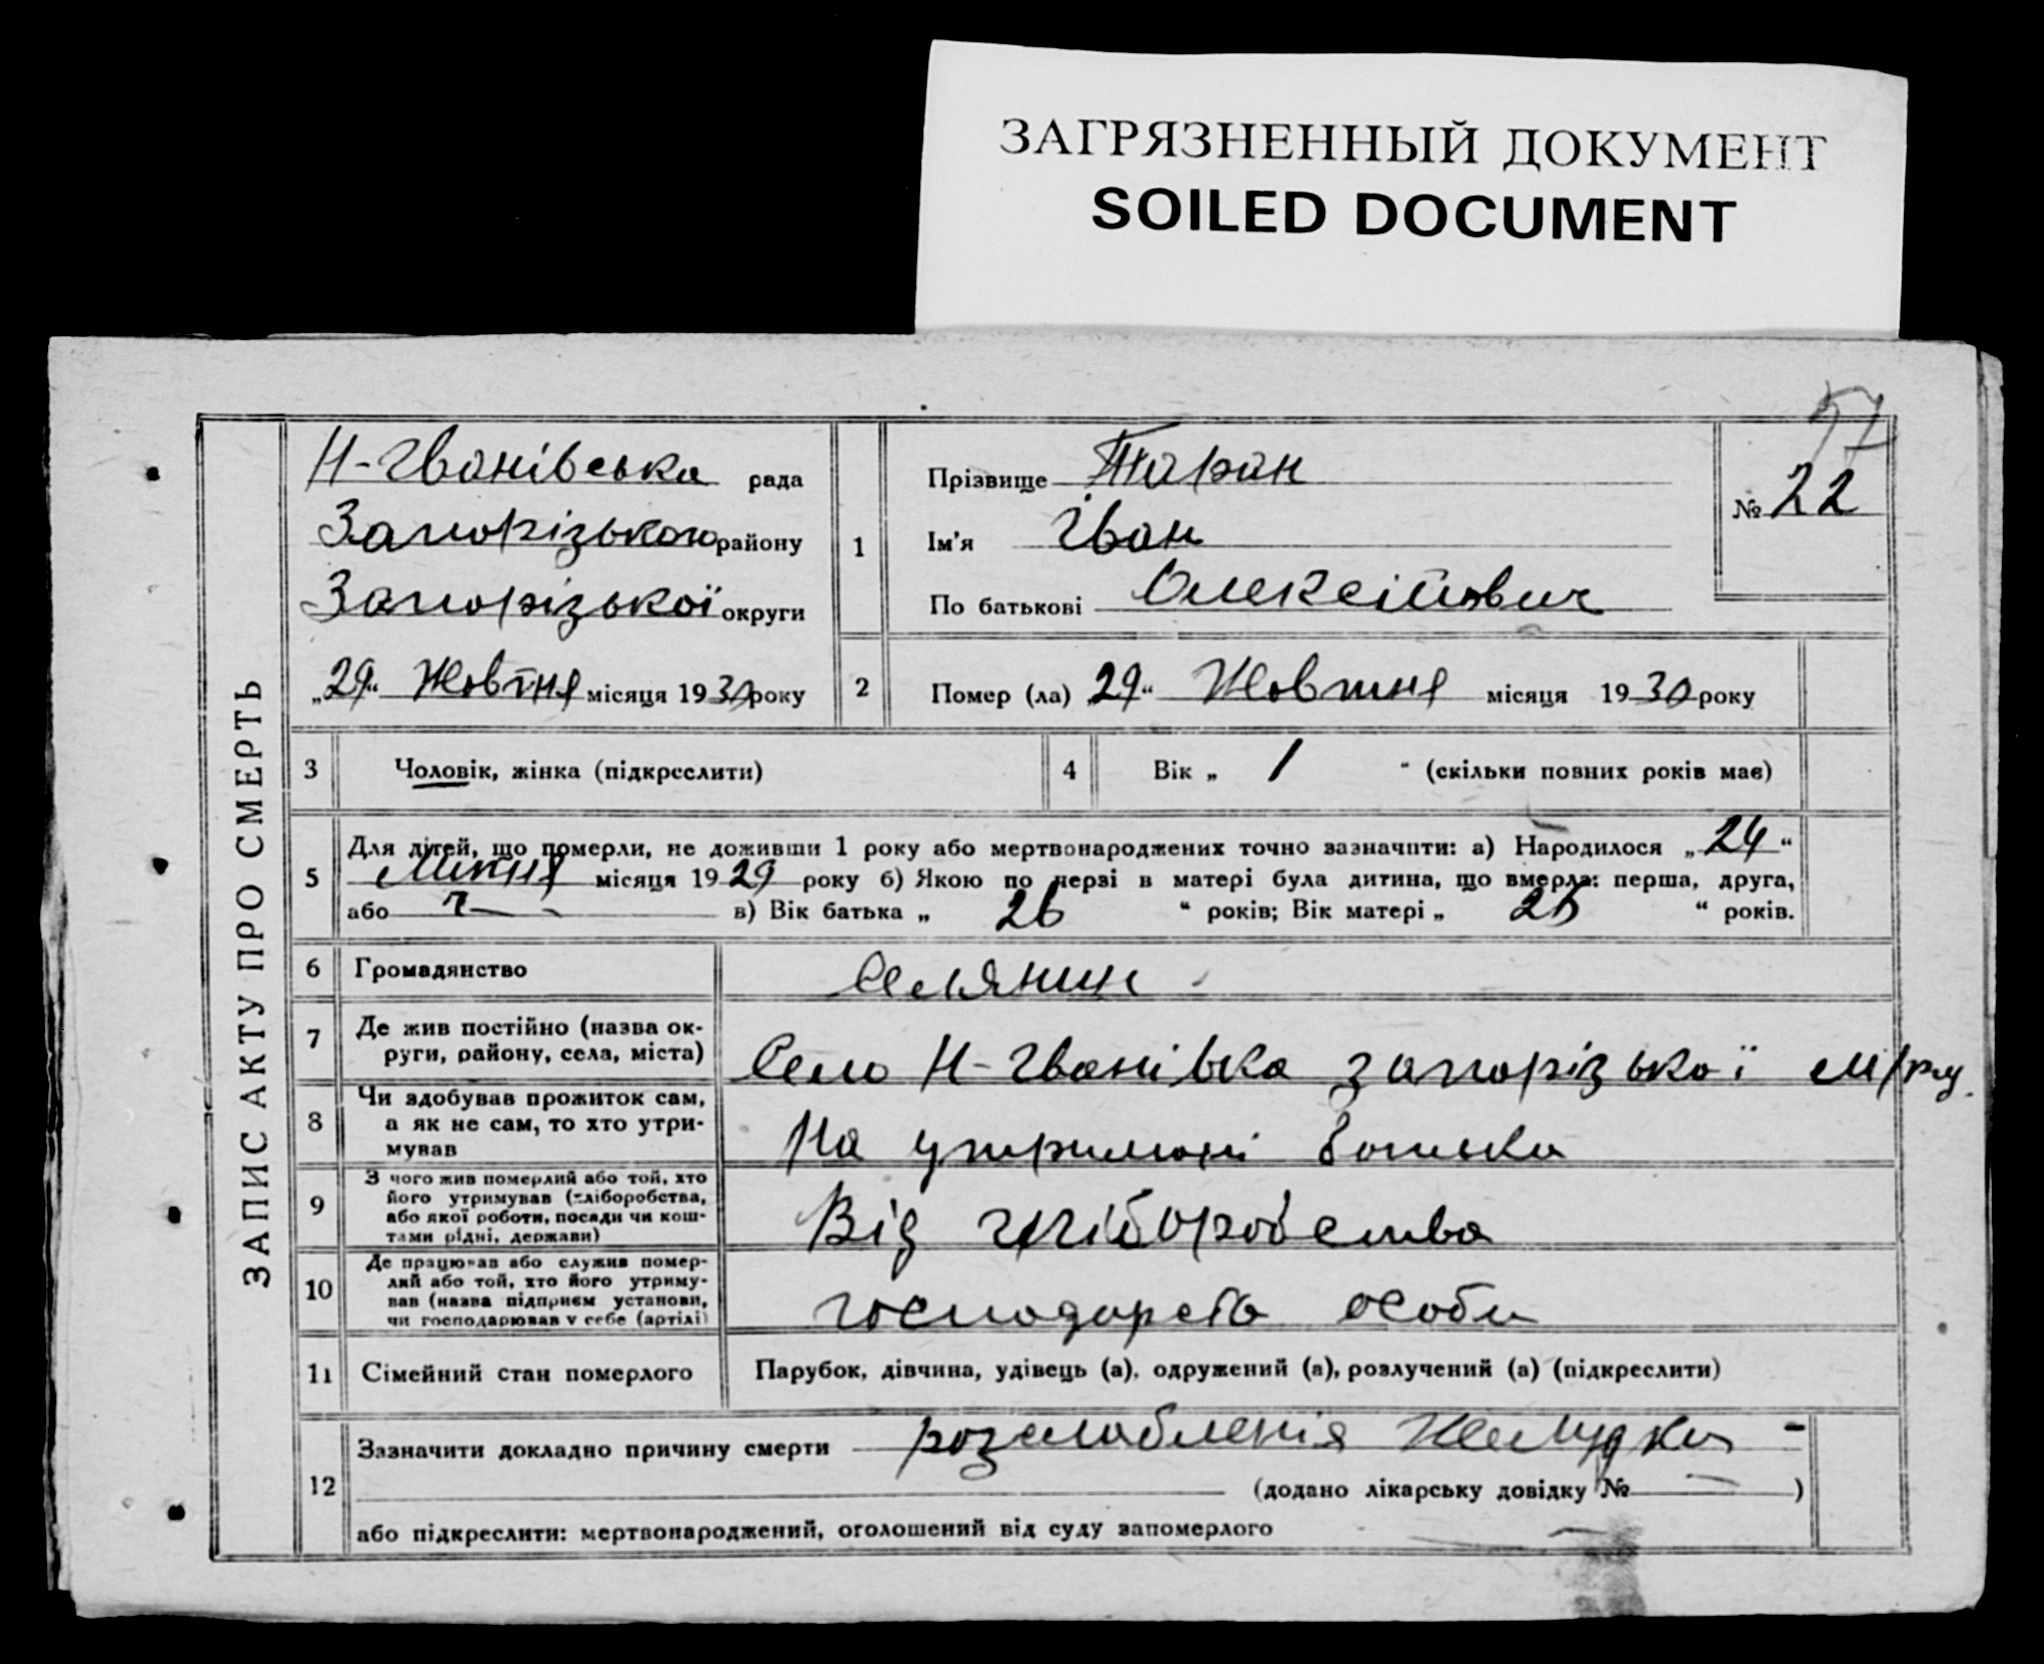 ЗАГРЯЗНЕННЫЙ ДОКУМЕНТ
SOILED DOCUMENT
57
ЗАПИС АКТУ ПРО СМЕРТЬ
Н-Іванівська рада
Запорізького району
Запорізької округи
„29“ Жовтня місяця 1930 року
1
Прізвище Таран
Ім'я Іван
По батькові Олексійович
№ 22
2
Помер (ла) 29“ Жовтня місяця 1930 року
3 Чоловік, жінка (підкреслити)
4 Вік „ 1 “ (скільки повних років має)
5 Для дітей, що померли, не доживши 1 року або мертвонароджених точно зазначити: а) Народилося „24“
Липня місяця 1929 року б) Якою по черзі в матері була дитина, що вмерла: перша, друга,
або в) Вік батька „ 26 “ років; Вік матері „ “ років.
6 Громадянство Селянин
7 Де жив постійно (назва ок-
руги, району, села, міста)
Село Н-Іванівка запорізької м/рку.
8 Чи здобував прожиток сам,
а як не сам, то хто утри-
мував
На утримані батька
9 З чого жив померлий або той, хто
його утримував (хліборобства,
або якої роботи, посади чи кош-
тами рідні, держави)
Від хліборобства
10 Де працював або служив помер-
лий або той, хто його утриму-
вав (назва підприєм установи,
чи господарював у себе (артілі)
господарств особи
11 Сімейний стан померлого Парубок, дівчина, удівець (а), одружений (а), розлучений (а) (підкреслити)
12 Зазначити докладно причину смерти розслабленія Желудка -
(додано лікарську довідку № — )
або підкреслити: мертвонароджений, оголошений від суду запомерлого